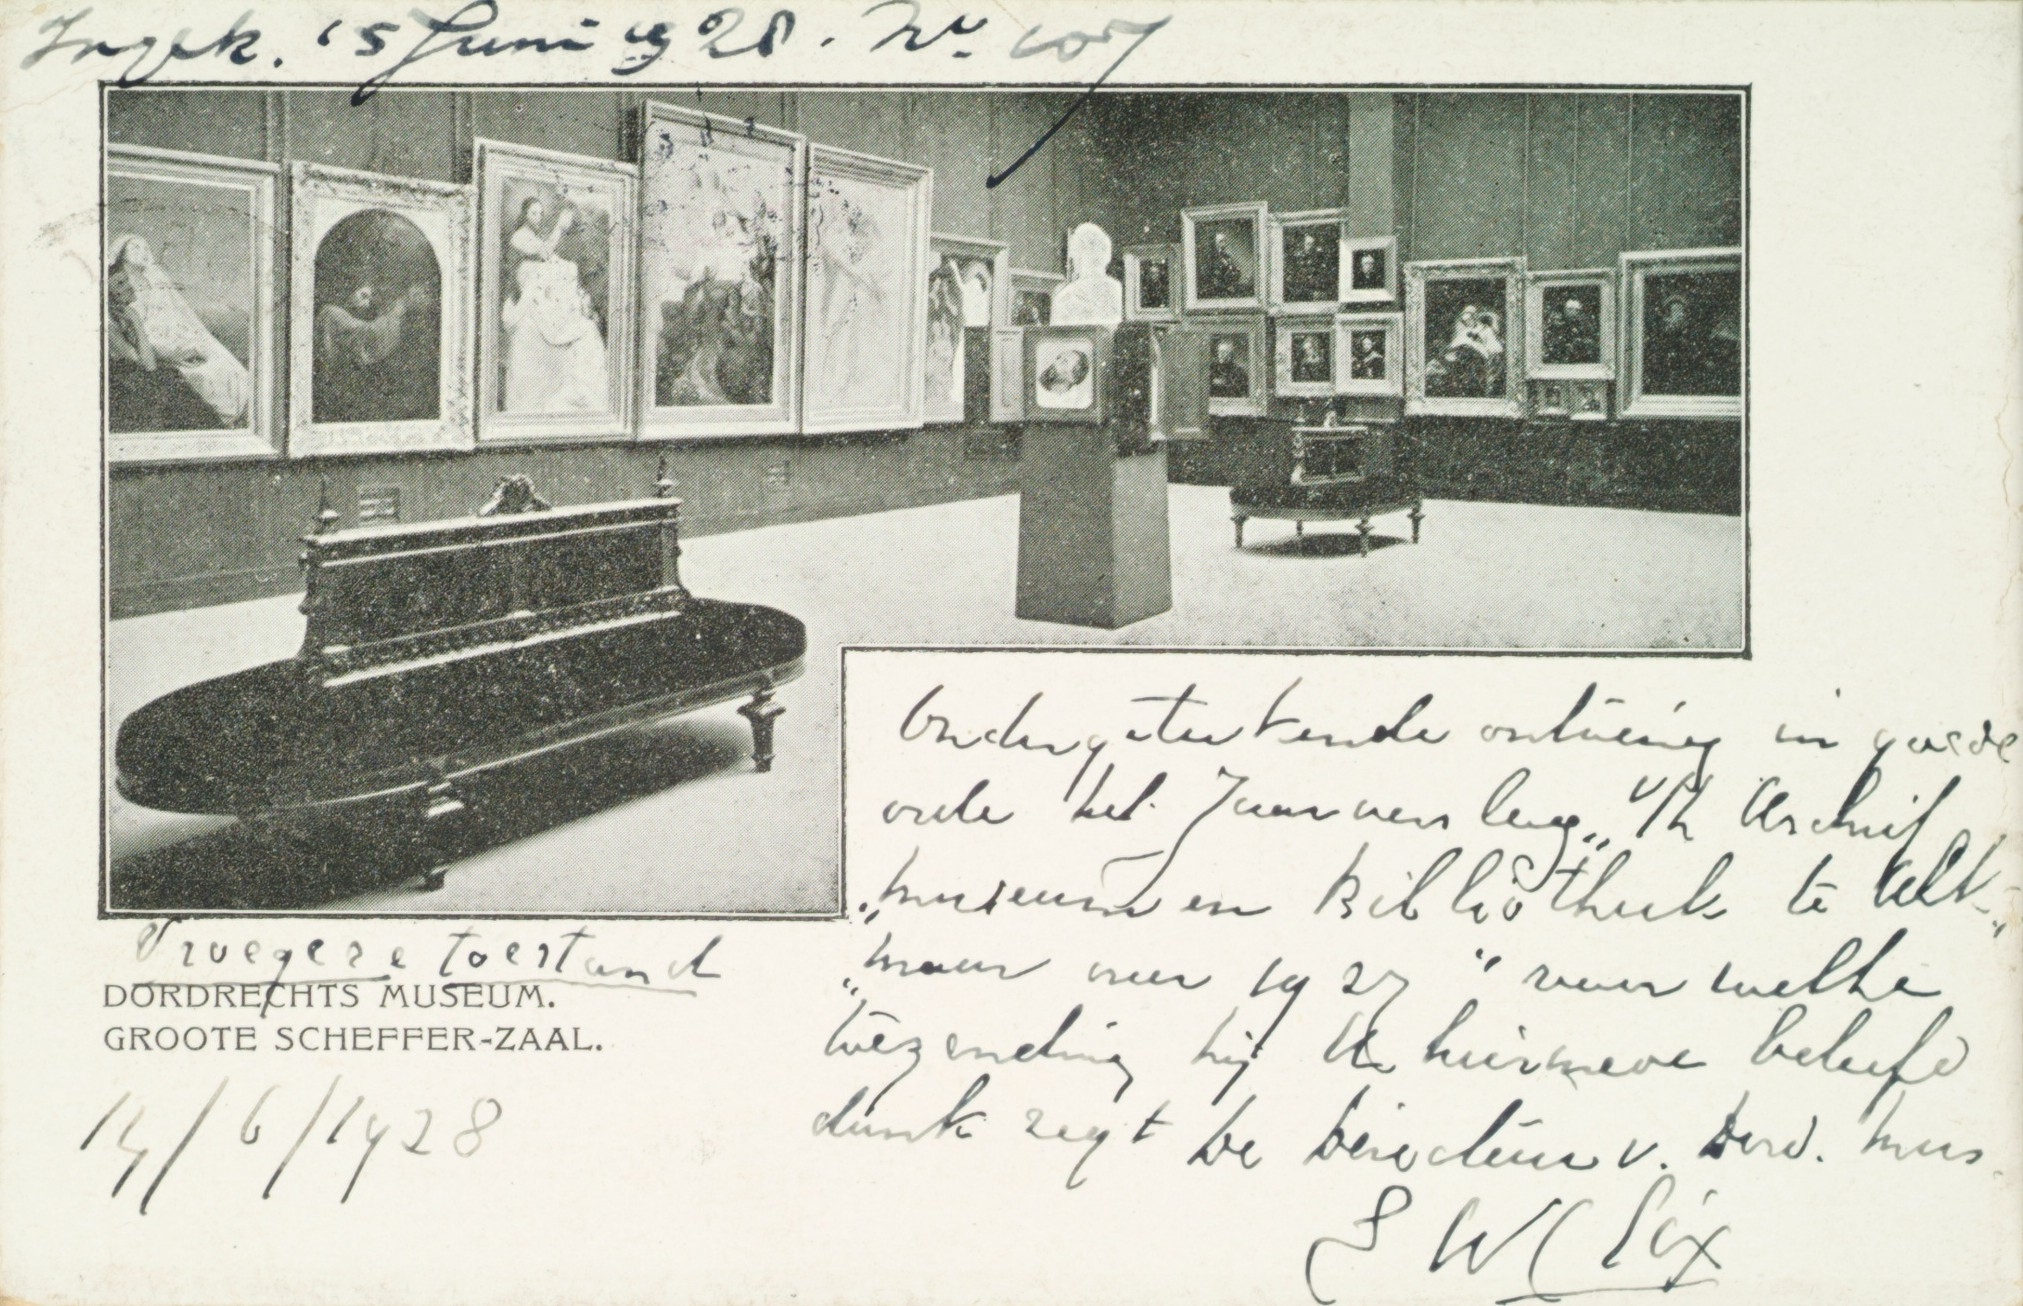 Ingek. 15 Juni 1928. No. 107
Vroegere toestand
DORDRECHTS MUSEUM.
GROOTE SCHEFFER-ZAAL.
14/6/1928
Ondergeteekende ontving in goede
orde het Jaarverslag „Uh Archief
„museum en Bibliotheek te Alk-„
„maar over 1927" voor welke
toezending hij U hiermede beleefd
dank zegt De Directeur v. Dord. Mus.
S W L Six